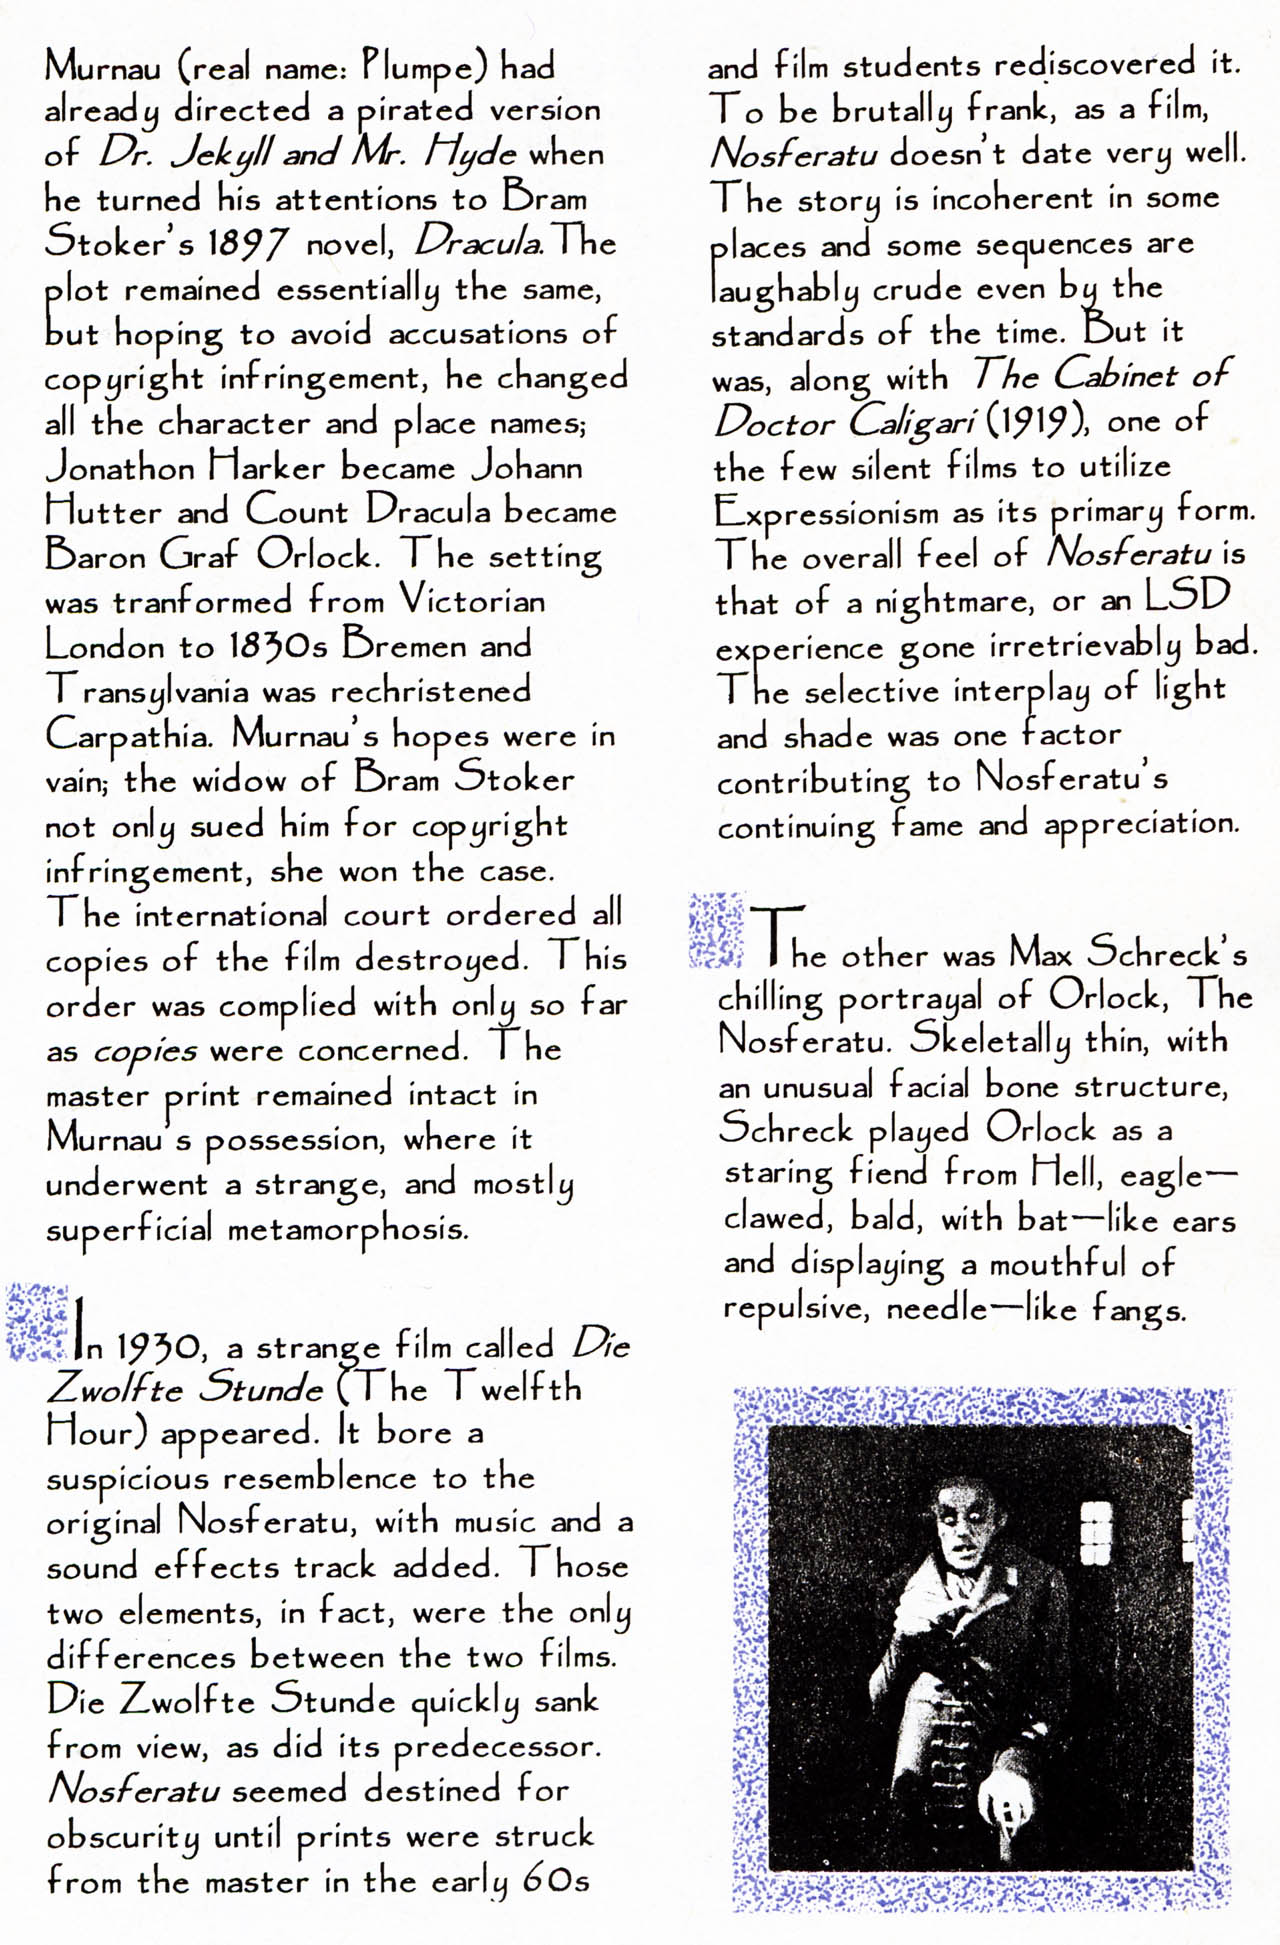 Murnau (real name: Plumpe) had
already directed a pirated version
of Dr. Jekyll and Mr. Hyde when
he turned his attentions to Bram
Stoker's 1897 novel, Dracula. The
plot remained essentially the same,
but hoping to avoid accusations of
copyright infringement, he changed
all the character and place names;
Jonathon Harker became Johann
Hutter and Count Dracula became
Baron Graf Orlock. The setting
was tranformed from Victorian
London to 1830s Bremen and
Transylvania was rechristened
Carpathia. Murnau's hopes were in
vain; the widow of Bram Stoker
not only sued him for copyright
infringement, she won the case.
The international court ordered all
copies of the film destroyed. This
order was complied with only so far
as copies were concerned. The
master print remained intact in
Murnau's possession, where it
underwent a strange, and mostly
superficial metamorphosis.
In 1930, a strange film called Die
Zwolfte Stunde (The Twelfth
Hour) appeared. It bore a
suspicious resemblence to the
original Nosferatu, with music and a
sound effects track added. Those
two elements, in fact, were the only
differences between the two films.
Die Zwolfte Stunde quickly sank
from view, as did its predecessor.
Nosferatu seemed destined for
obscurity until prints were struck
from the master in the early 60s
and film students rediscovered it.
To be brutally frank, as a film,
Nosferatu doesn't date very well.
The story is incoherent in some
places and some sequences are
laughably crude even by the
standards of the time. But it
was, along with The Cabinet of
Doctor Caligari (1919), one of
the few silent films to utilize
Expressionism as its primary form.
The overall feel of Nosferatu is
that of a nightmare, or an LSD
experience gone irretrievably bad.
The selective interplay of light
and shade was one factor
contributing to Nosferatu's
continuing fame and appreciation.
The other was Max Schreck's
chilling portrayal of Orlock, The
Nosferatu. Skeletally thin, with
an unusual facial bone structure,
Schreck played Orlock as a
staring fiend from Hell, eagle—
clawed, bald, with bat—like ears
and displaying a mouthful of
repulsive, needle—like fangs.